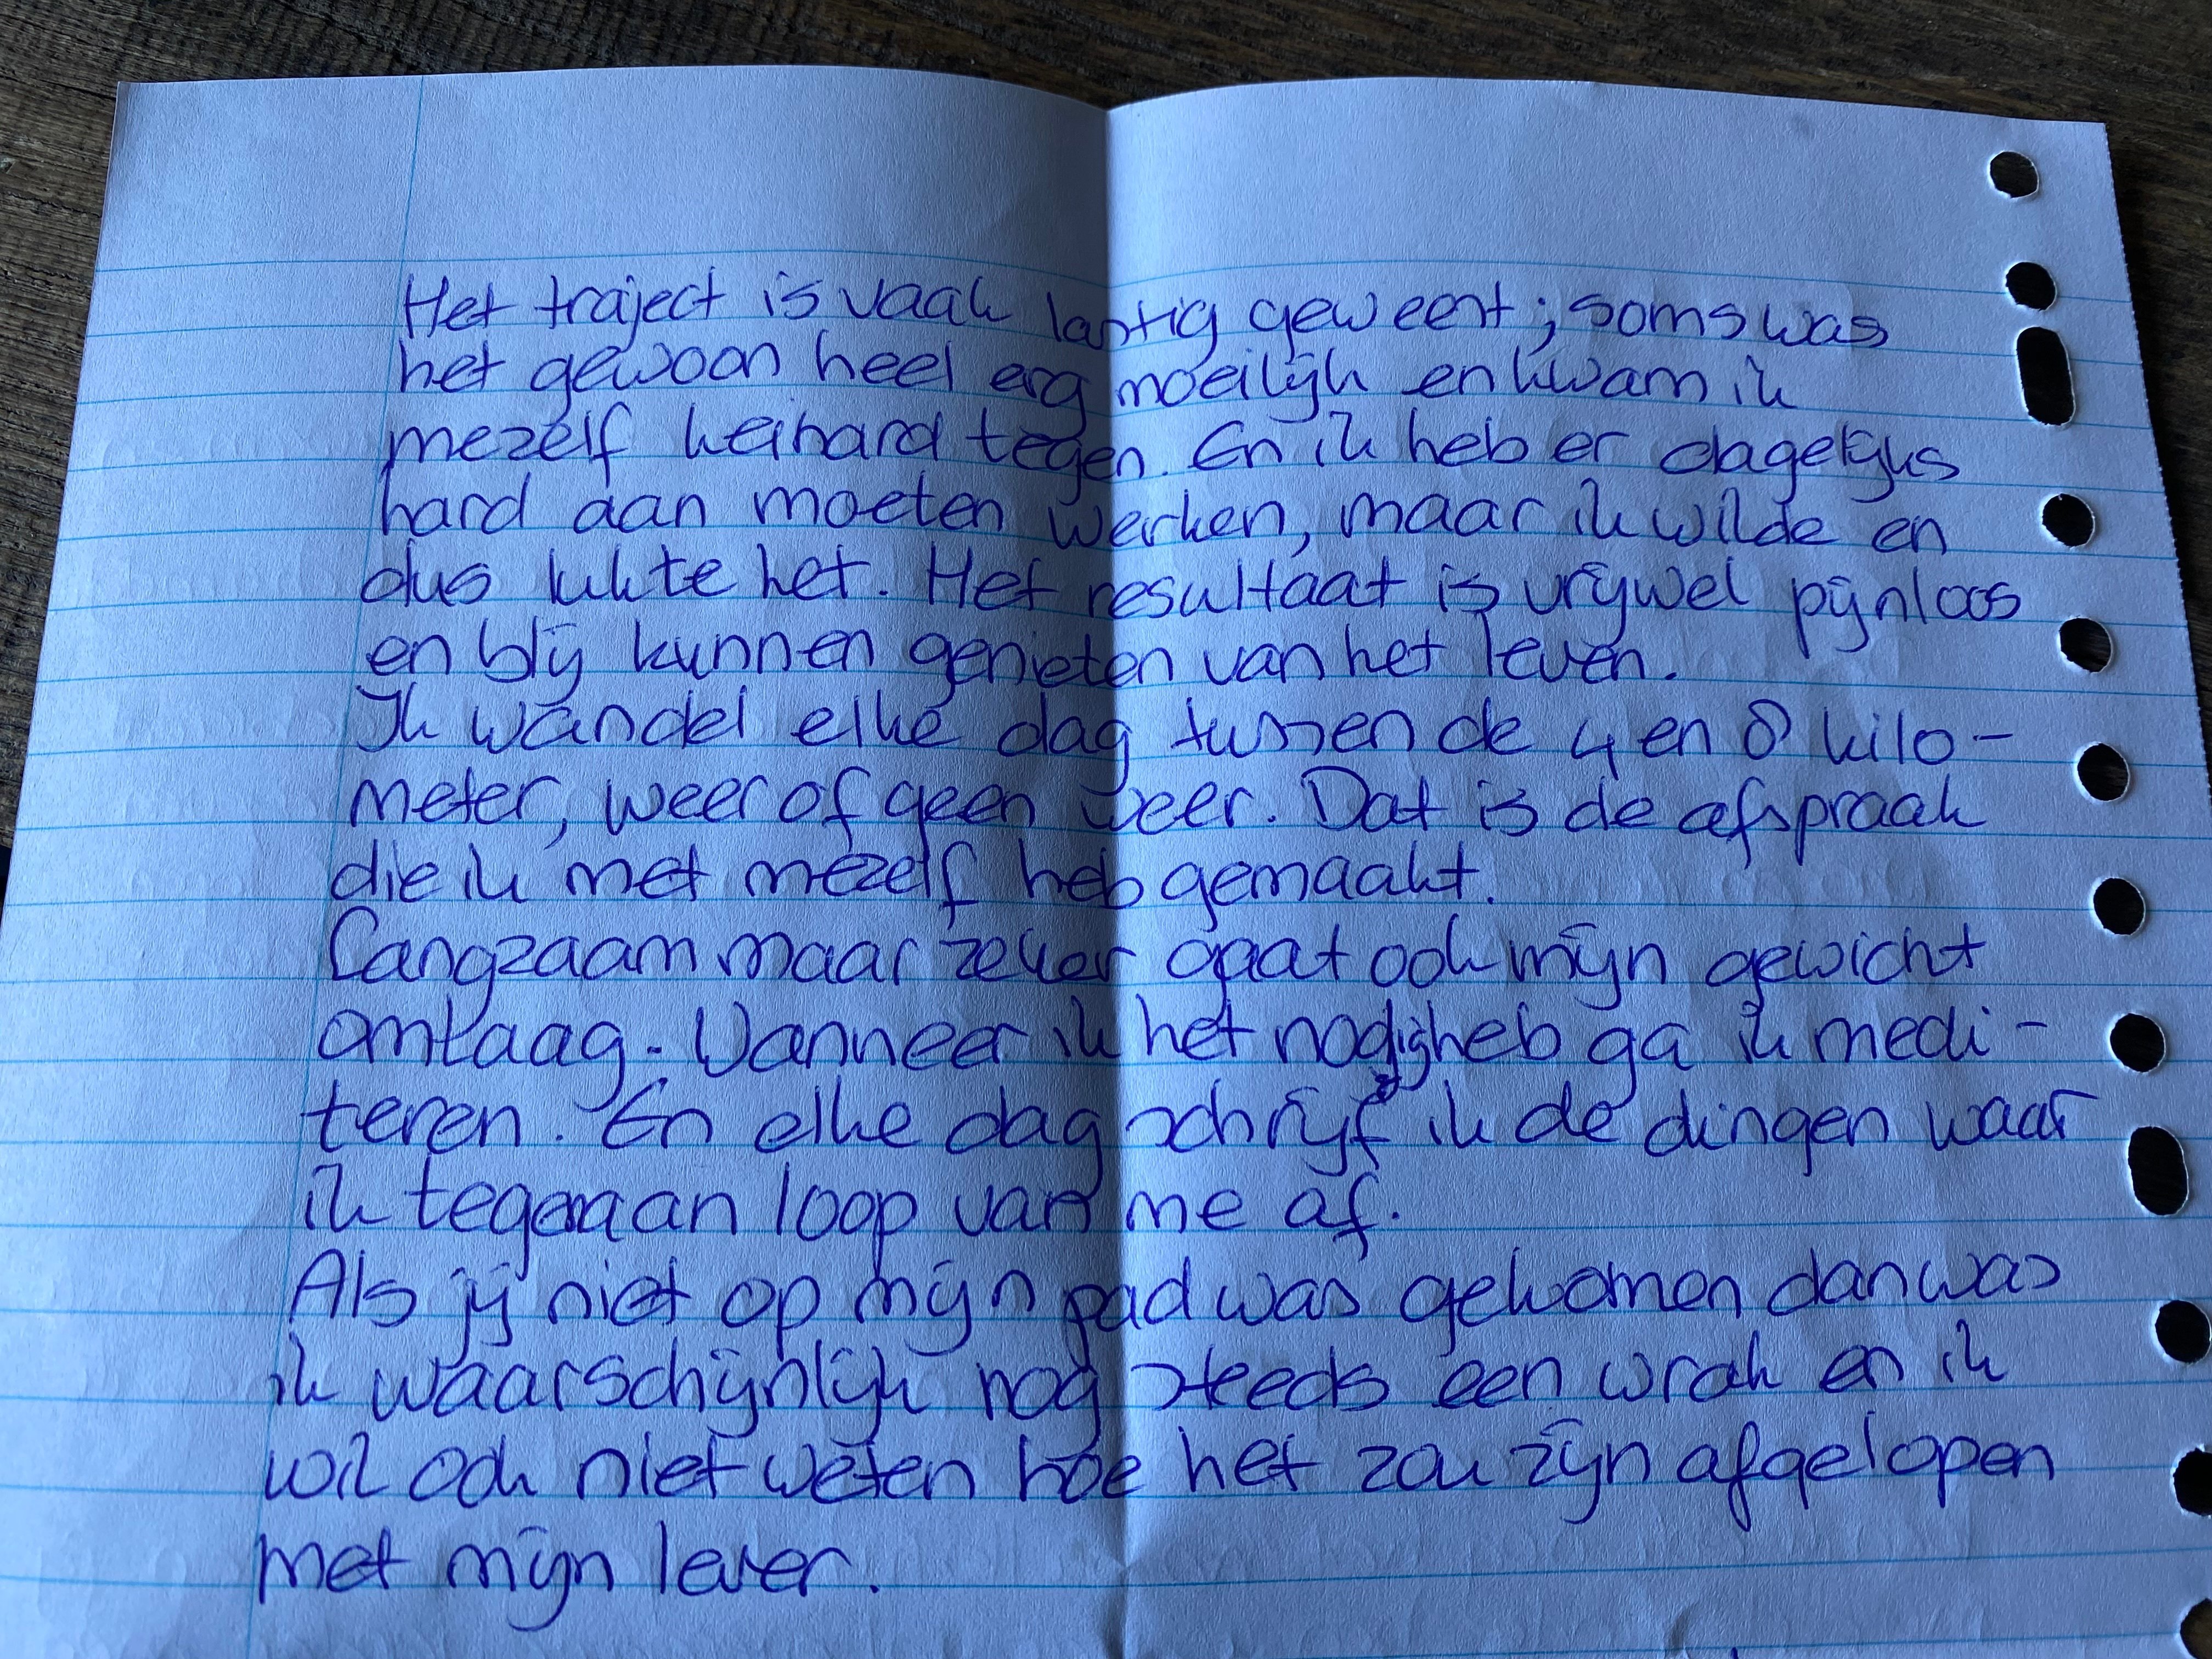 Het traject is vaak lastig geweest; soms was
het gewoon heel erg moeilijk en kwam ik
mezelf keihard tegen. En ik heb er dagelijks
hard aan moeten werken, maar ik wilde en
dus lukte het. Het resultaat is vrijwel pijnloos
en blij kunnen genieten van het leven.
Ik wandel elke dag tussen de 4 en 8 kilo-
meter, weer of geen weer. Dat is de afspraak
die ik met mezelf heb gemaakt.
Langzaam maar zeker gaat ook mijn gewicht
omlaag. Wanneer ik het nodig heb ga ik medi-
teren. En elke dag schrijf ik de dingen waar
ik tegenaan loop van me af.
Als jij niet op mijn pad was gekomen dan was
ik waarschijnlijk nog steeds een wrak en ik
wil ook niet weten hoe het zou zijn afgelopen
met mijn lever.